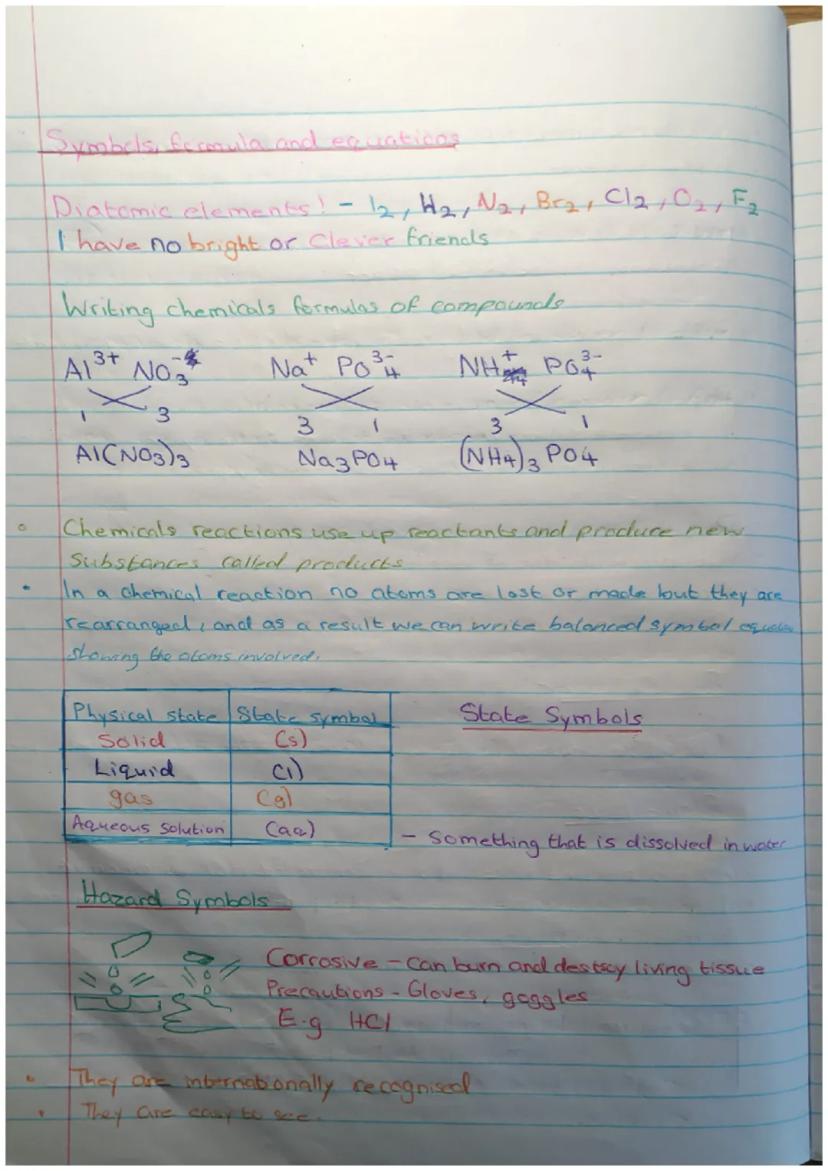 Symbols, formula and equations
Diatomic elements! - I2, H2, N2, Br2, Cl2, O2, F2
I have no bright or Clever friends
Writing chemicals formulas of compounds
Al³⁺ NO₃⁻ Na⁺ PO₄³⁻ NH₄⁺ PO₄³⁻
1 3 3 1 3 1
Al(NO3)3 Na3PO4 (NH4)3 PO4
Chemicals reactions use up reactants and produce new
Substances called products
In a chemical reaction no atoms are lost or made but they are
rearranged, and as a result we can write balanced symbol
showing the atoms involved.
Physical state State symbol State Symbols
Solid (s)
Liquid (l)
gas (g)
Aqueous solution (aq) - Something that is dissolved in water
Hazard Symbols
Corrosive - can burn and destroy living tissue
Precautions - Gloves, goggles
E.g HCl
They are internationally recognised
They are easy to see.